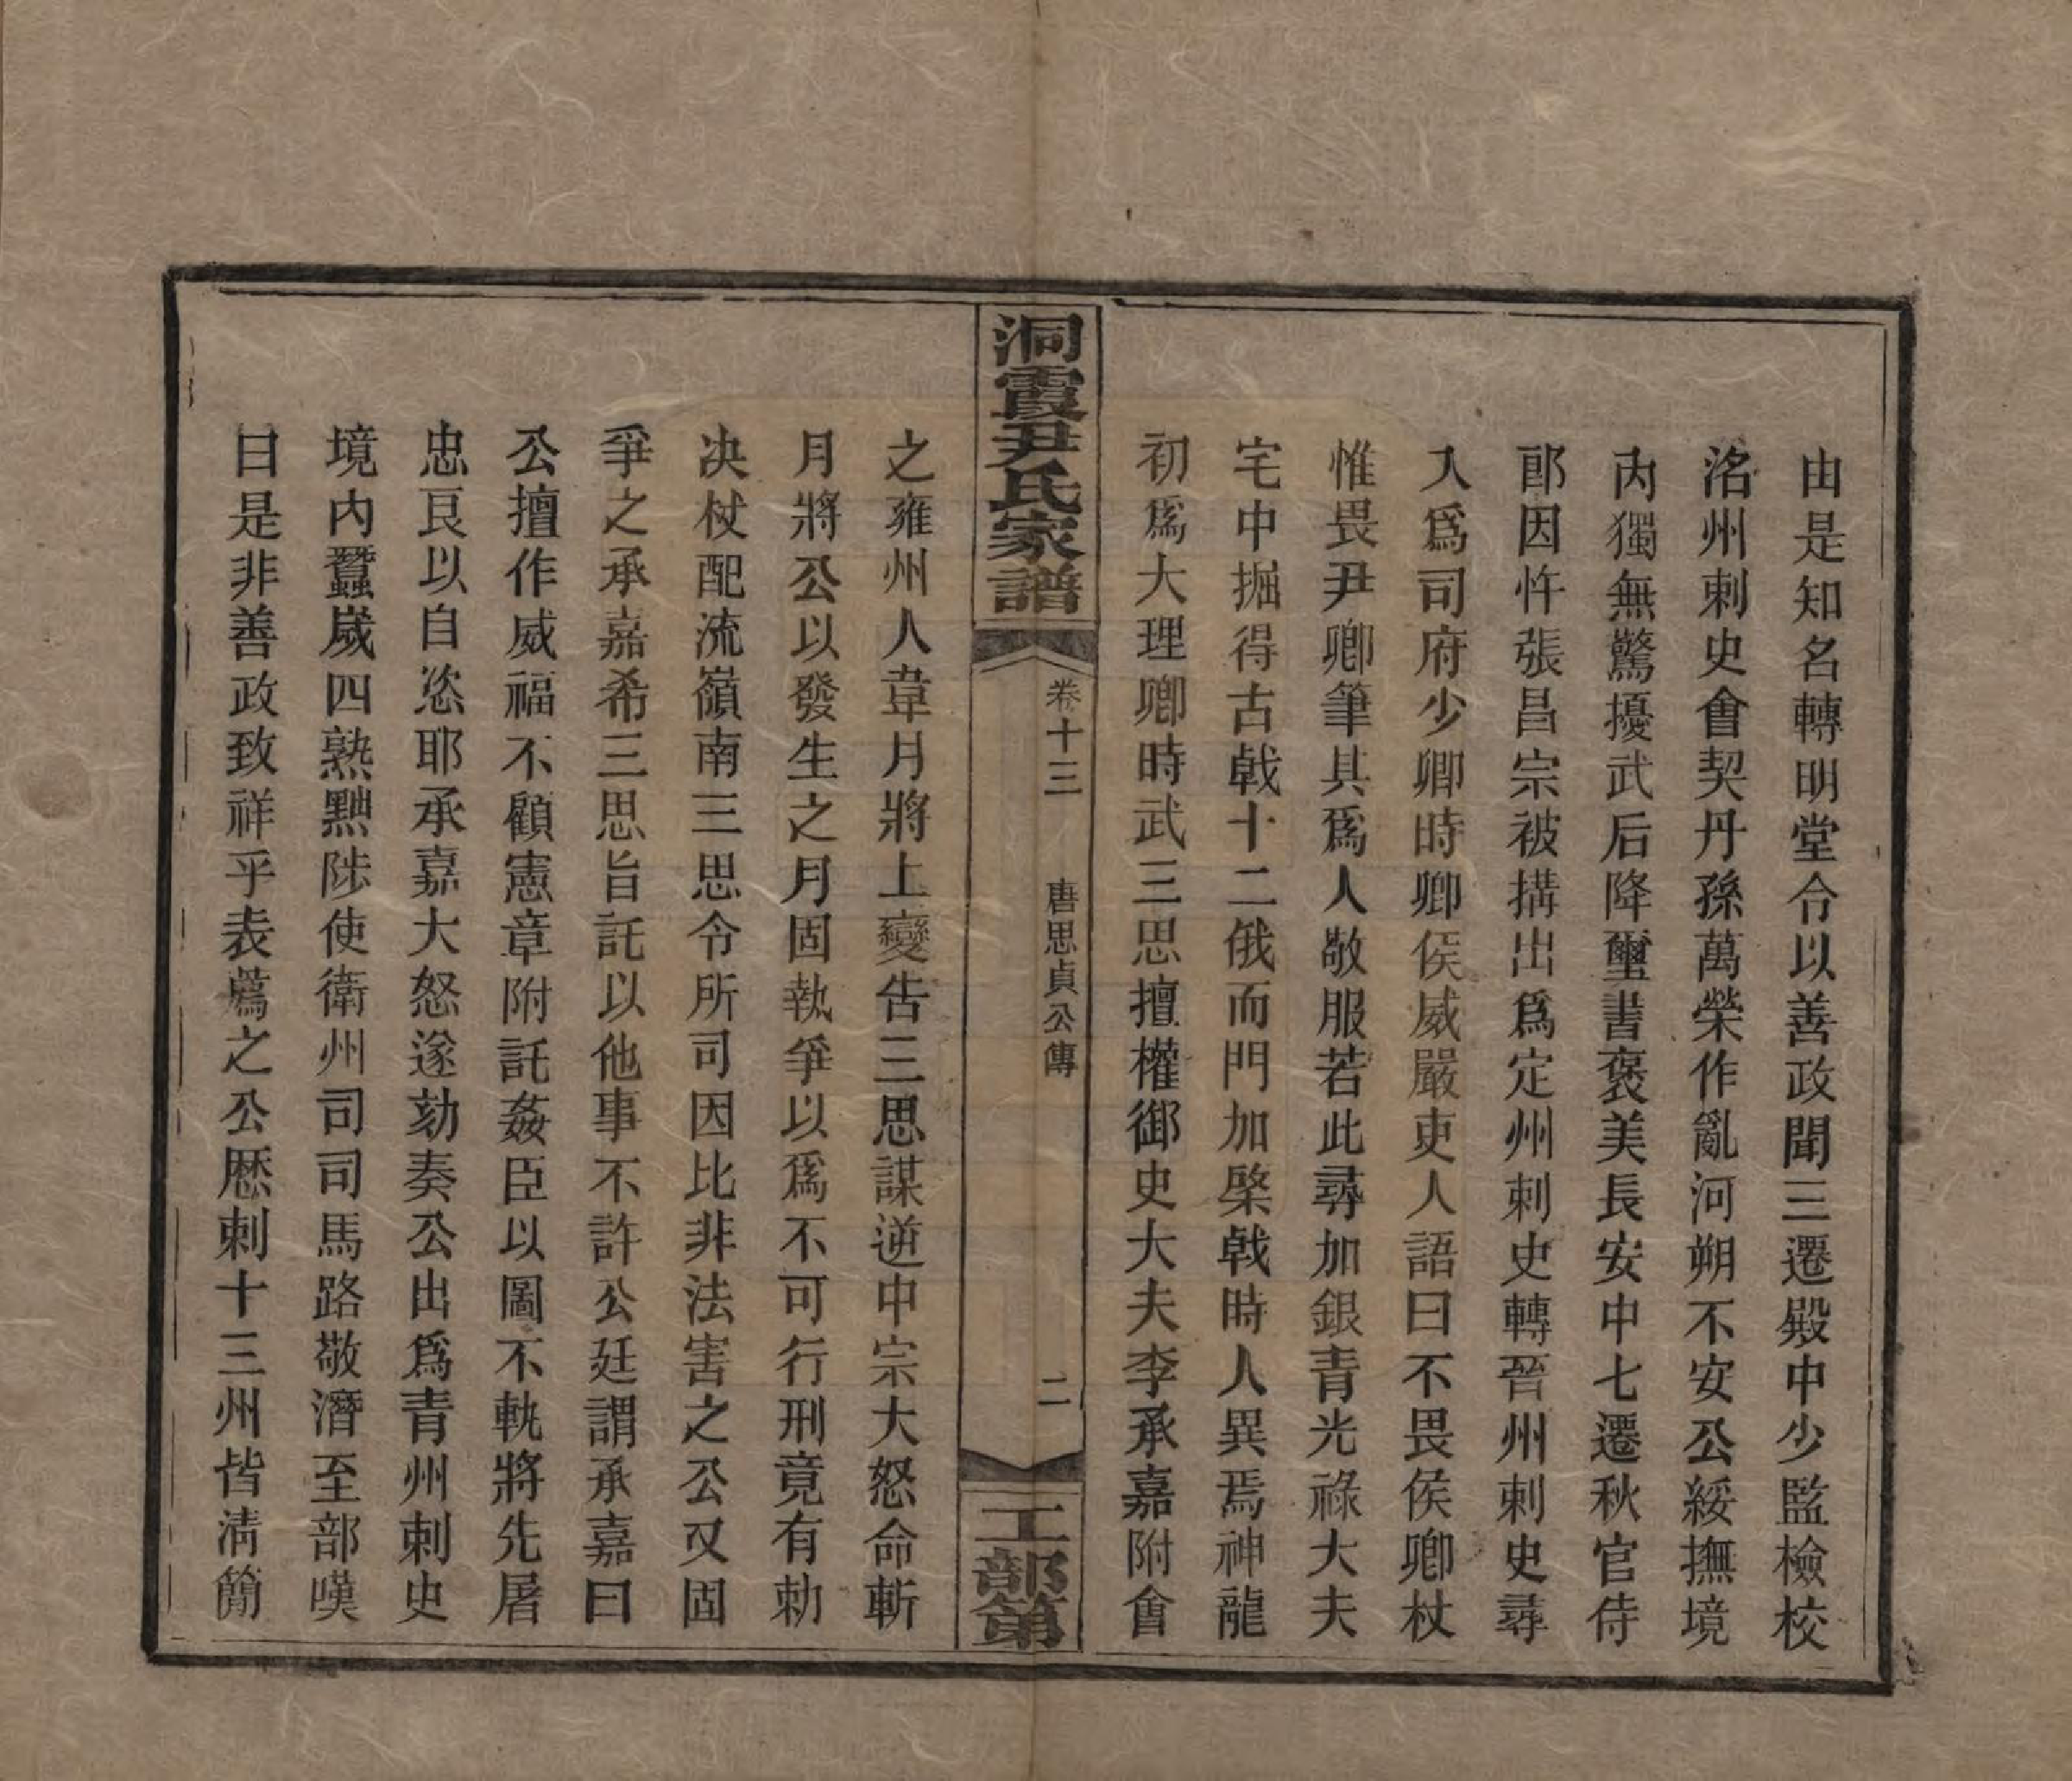 由是知名轉明堂令以善政聞三遷殿中少監檢校
洺州刺史會契丹孫萬榮作亂河朔不安公綏撫境
內獨無驚擾武后降璽書褒美長安中七遷秋官侍
郎因忤張昌宗被搆出爲定州刺史轉晉州刺史尋
入爲司府少卿時卿侯威嚴吏人語曰不畏侯卿杖
惟畏尹卿筆其爲人敬服若此尋加銀青光祿大夫
宅中掘得古戟十二俄而門加棨戟時人異焉神龍
初爲大理卿時武三思擅權御史大夫李承嘉附會
洞霞尹氏家譜
卷十三
唐思貞公傳
二
工部第
之雍州人韋月將上變告三思謀逆中宗大怒命斬
月將公以發生之月固執爭以爲不可行刑竟有勅
决杖配流嶺南三思令所司因比非法害之公又固
爭之承嘉希三思旨託以他事不許公廷謂承嘉曰
公擅作威福不顧憲章附託姦臣以圖不軌將先屠
忠良以自恣耶承嘉大怒遂劾奏公出爲青州刺史
境內蠶嵗四熟黜陟使衛州司司馬路敬潛至部嘆
曰是非善政致祥乎表薦之公歷刺十三州皆清簡